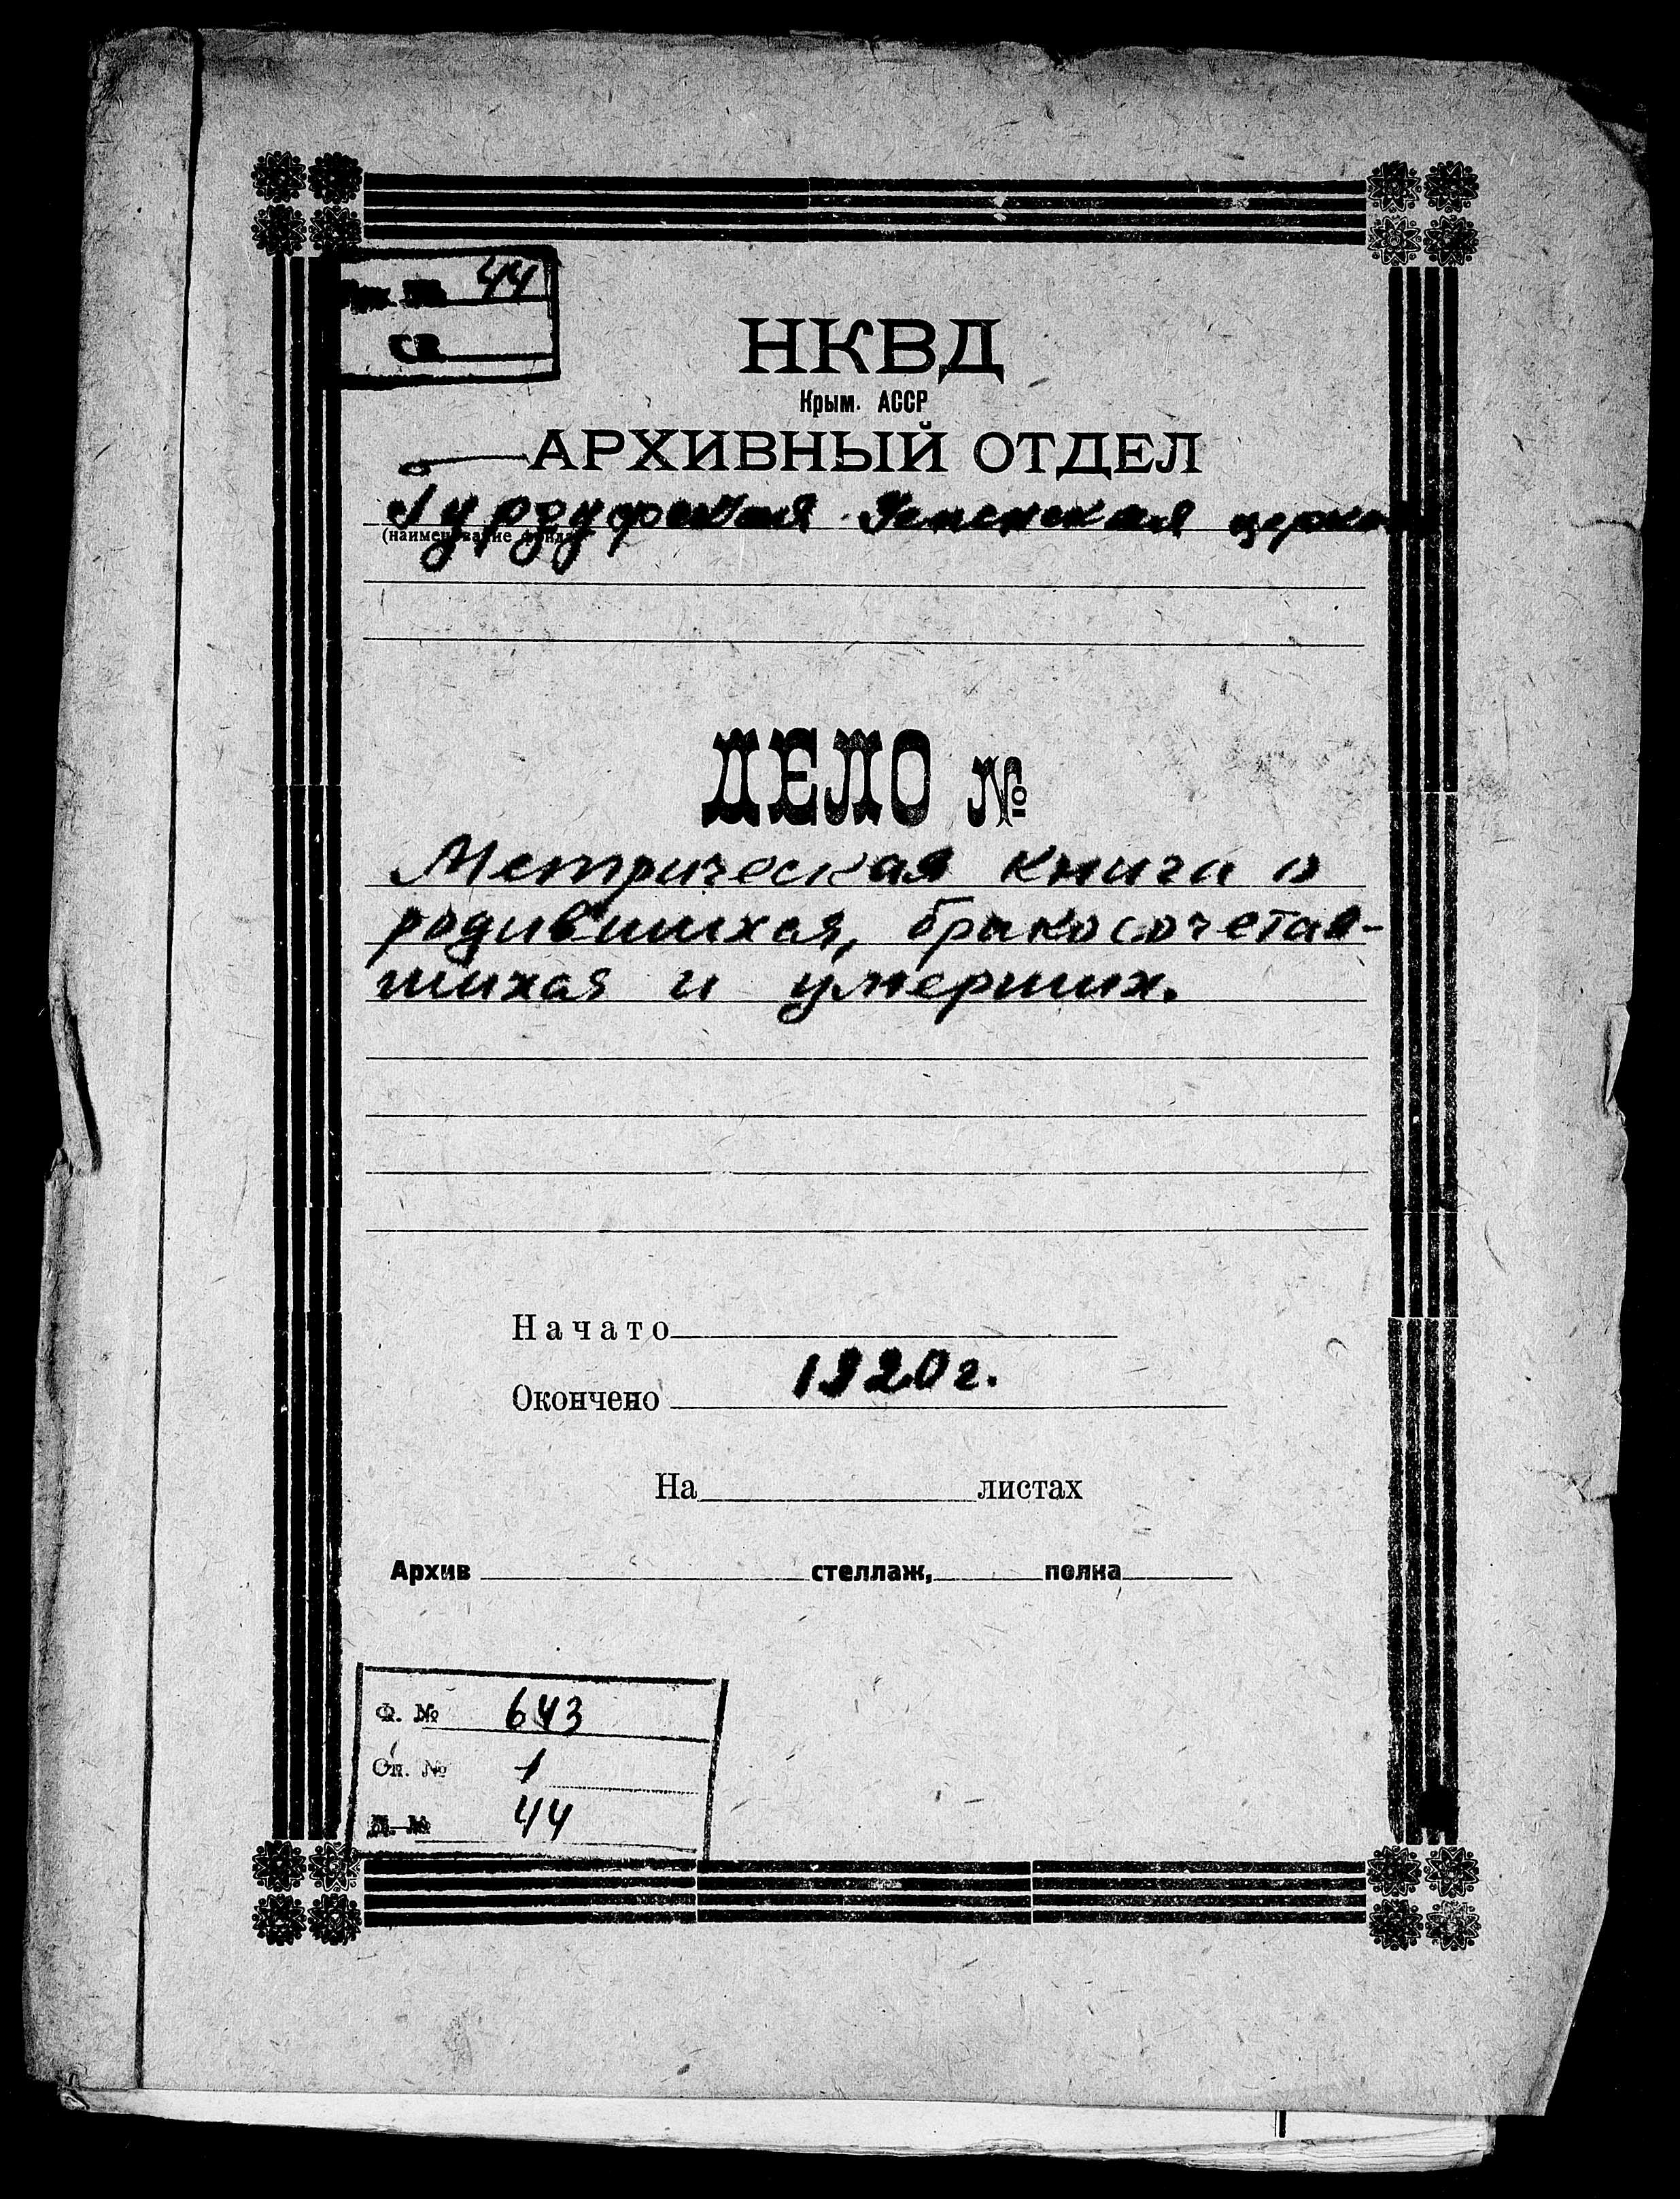 44
НКВД
Крым. АССР
АРХИВНЫЙ ОТДЕЛ
Гурзуфская Успенская церковь
(наименование фонда)
ДЕЛО №
Метрическая книга о
родившихся, бракосочетав-
шихся и умерших.
Начато
1920 г.
Окончено
На листах
Архив стеллаж, полка
Ф. № 643
Оп. № 1
Д. № 44